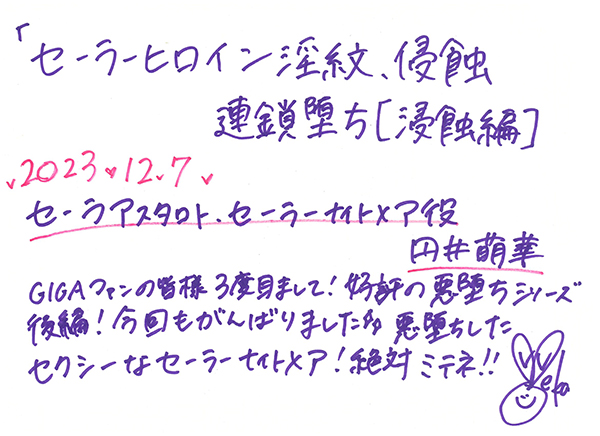 「セーラーヒロイン淫紋、侵蝕
連鎖堕ち[浸蝕編]
2023♥12.7
セーラアスタロト、セーラーナイトメア役
円井萌華
GIGAファンの皆様3度目まして!好評の悪堕ちシリーズ
後編!今回もがんばりました 悪堕ちした
セクシーなセーラーナイトメア!絶対ミテネ!!